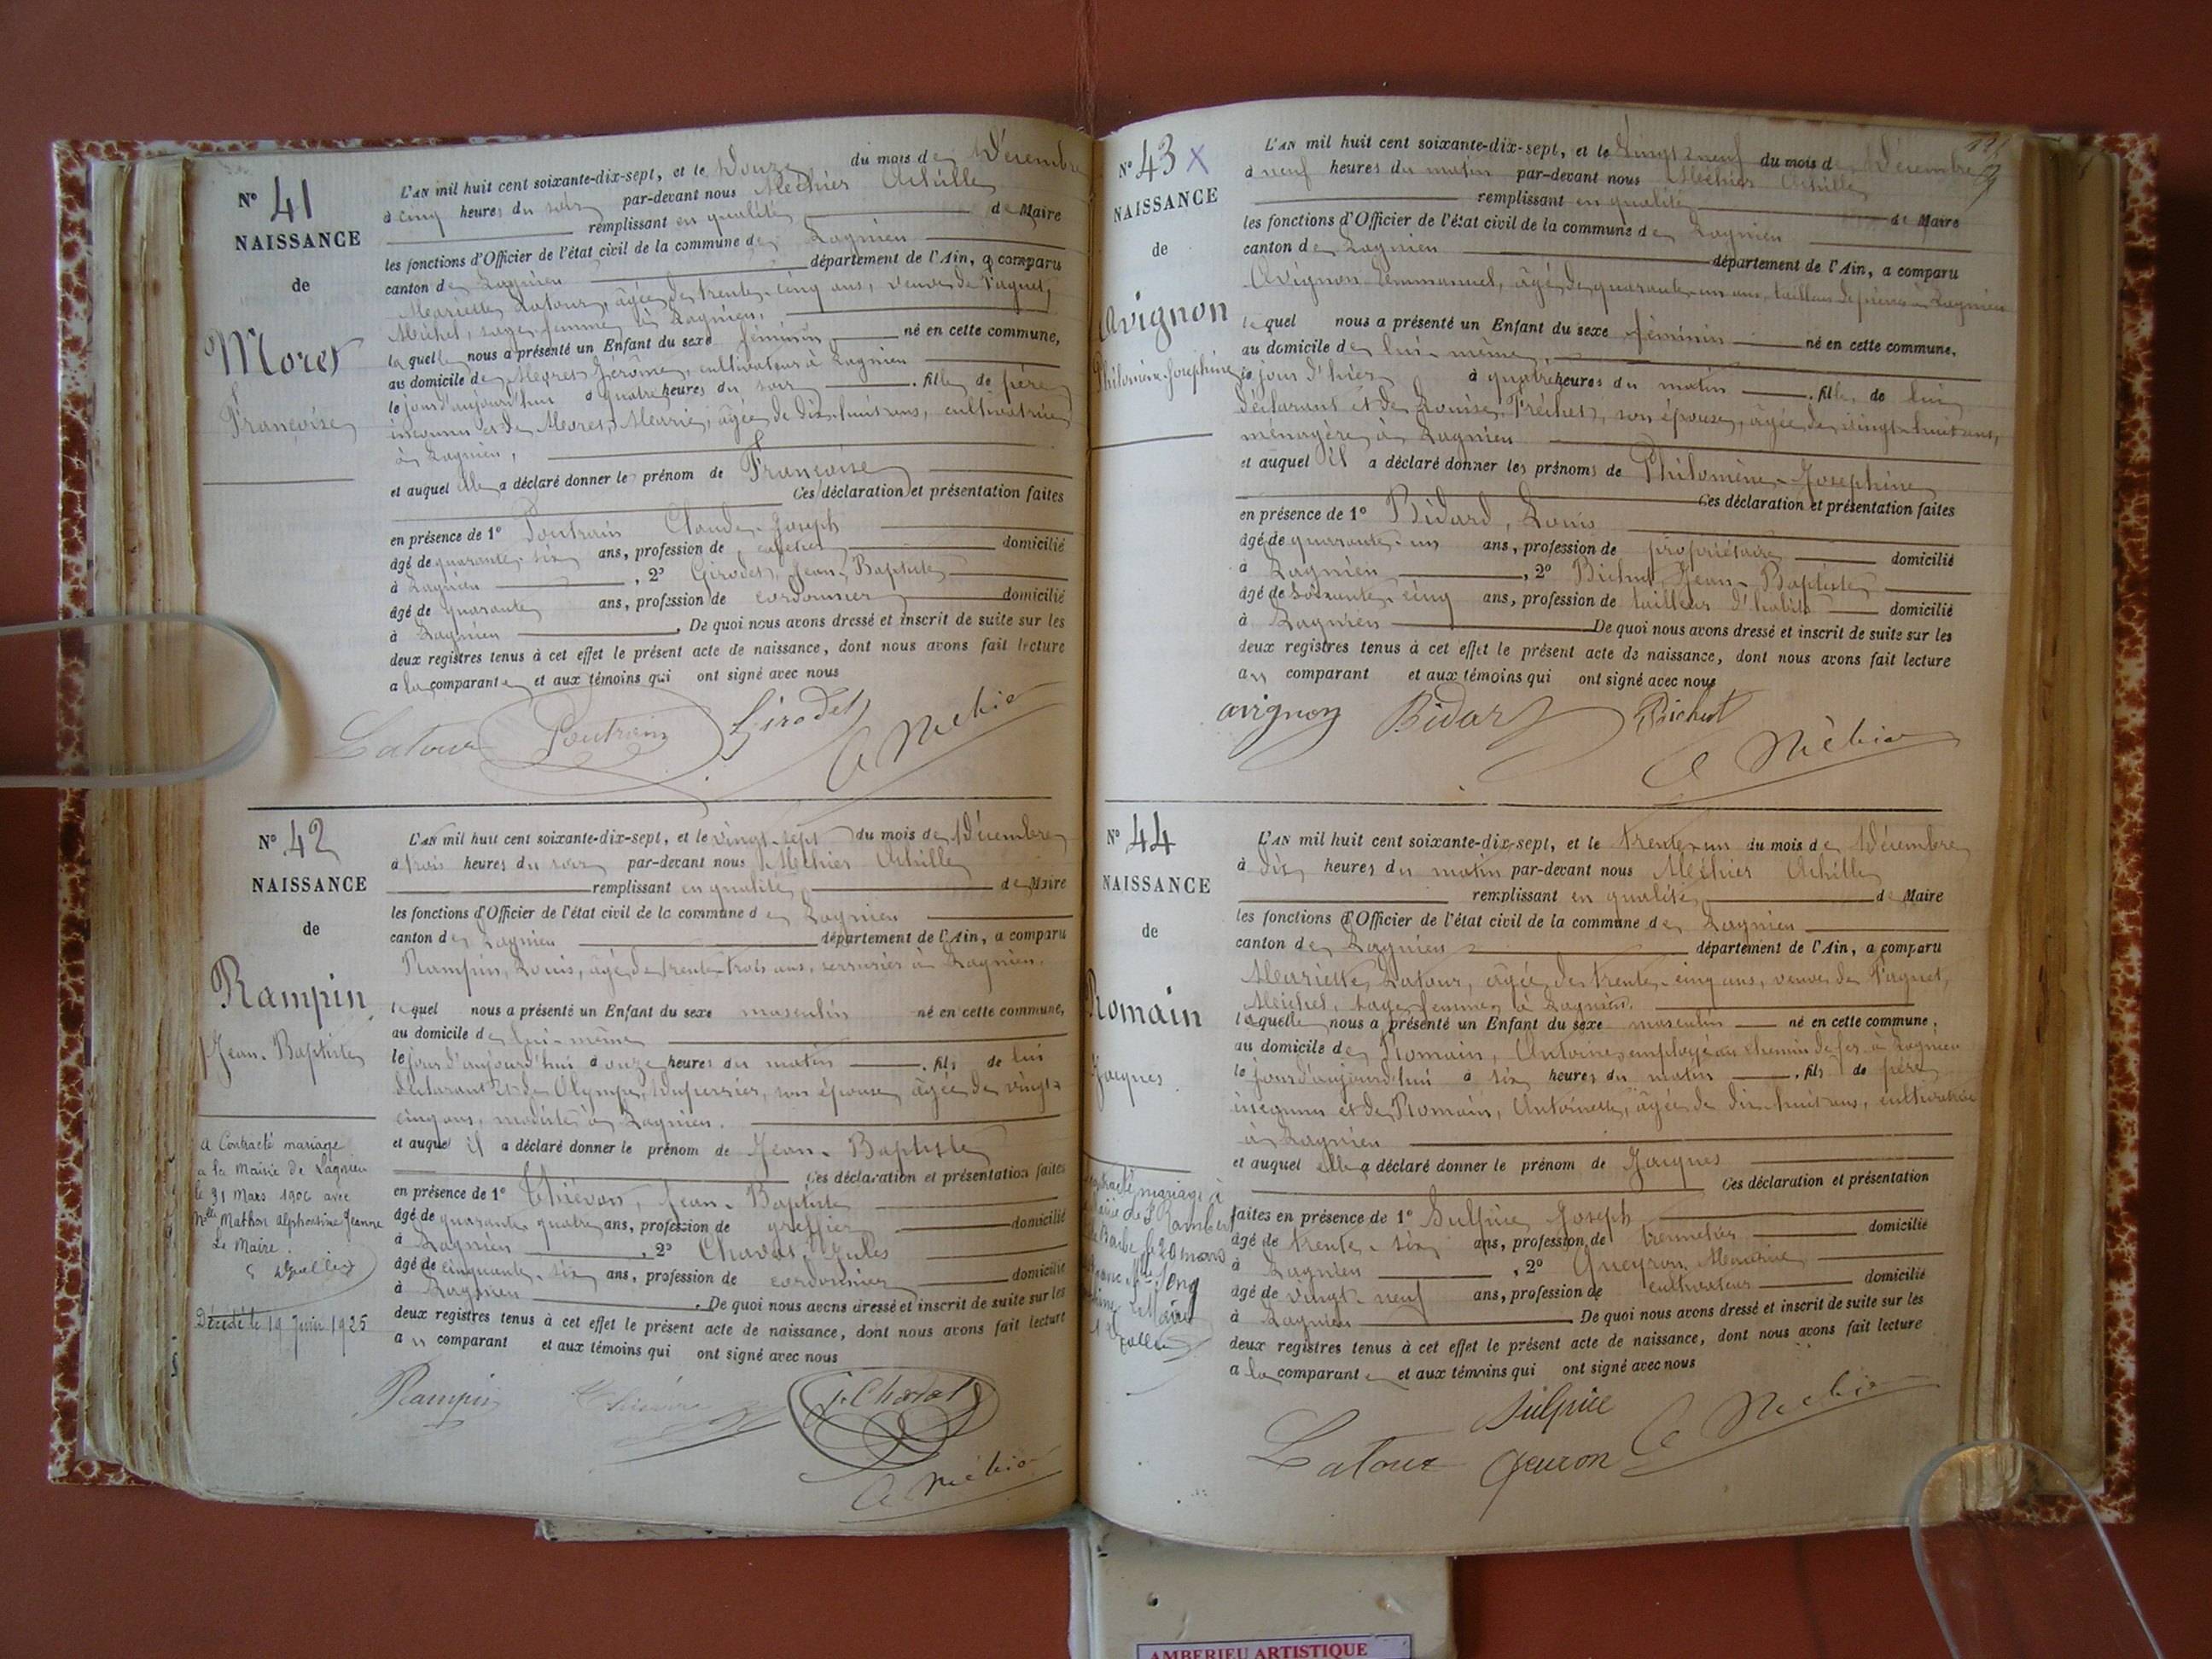 N° 41
NAISSANCE
de
Moret
Françoise
L'AN mil huit cent soixante-dix-sept, et le Douze du mois de Décembre
à cinq heures du soir par-devant nous Méhier Achille
remplissant en qualité de Maire
les fonctions d'Officier de l'état civil de la commune de Lagnieu
canton de Lagnieu département de l'Ain, a comparu
Mariette Latour, âgée de trente-cinq ans, veuve de Paquet,
Michel, sage-femme à Lagnieu,
laquelle nous a présenté un Enfant du sexe féminin né en cette commune,
au domicile de Moret Jérôme, cultivateur à Lagnieu
le jour d'aujourd'hui à quatre heures du soir , fille de père
inconnu et de Moret, Marie, âgée de dix-huit ans, cultivatrice
à Lagnieu,
et auquel elle a déclaré donner le prénom de Françoise
Ces déclaration et présentation faites
en présence de 1° Poutrain Claude-Joseph
âgé de quarante-six ans, profession de cafetier domicilié
à Lagnieu , 2° Girodet, Jean-Baptiste
âgé de quarante ans, profession de cordonnier domicilié
à Lagnieu . De quoi nous avons dressé et inscrit de suite sur les
deux registres tenus à cet effet le présent acte de naissance, dont nous avons fait lecture
a la comparante et aux témoins qui ont signé avec nous
Latour Poutrain Girodet A Méhier
N° 42
NAISSANCE
de
Rampin
Jean-Baptiste
A Contracté mariage
a la Mairie de Lagnieu
le 31 Mars 1906 avec
Melle Mathon Alphonsine Jeanne
Le Maire
Décédé le 19 Juin 1925
L'AN mil huit cent soixante-dix-sept, et le vingt-sept du mois de Décembre
à trois heures du soir par-devant nous Méhier Achille
remplissant en qualité de Maire
les fonctions d'Officier de l'état civil de la commune de Lagnieu
canton de Lagnieu département de l'Ain, a comparu
Rampin, Louis, âgé de trente-trois ans, serrurier à Lagnieu.
lequel nous a présenté un Enfant du sexe masculin né en cette commune,
au domicile de lui-même
le jour d'aujourd'hui à onze heures du matin , fils de lui
déclarant et de Olympe Duperrier, son épouse, âgée de vingt-
cinq ans, modiste à Lagnieu.
et auquel il a déclaré donner le prénom de Jean-Baptiste
Ces déclaration et présentation faites
en présence de 1° Thiévon, Jean-Baptiste
âgé de quarante-quatre ans, profession de greffier domicilié
à Lagnieu , 2° Chavat, Jules
âgé de cinquante-six ans, profession de cordonnier domicilié
à Lagnieu . De quoi nous avons dressé et inscrit de suite sur les
deux registres tenus à cet effet le présent acte de naissance, dont nous avons fait lecture
au comparant et aux témoins qui ont signé avec nous
Rampin J. Chavat
A Méhier
N° 43 X
NAISSANCE
de
Avignon
Philomène-Joséphine
L'AN mil huit cent soixante-dix-sept, et le Vingt-neuf du mois de Décembre
à neuf heures du matin par-devant nous Méhier Achille
remplissant en qualité de Maire
les fonctions d'Officier de l'état civil de la commune de Lagnieu
canton de Lagnieu département de l'Ain, a comparu
Avignon Emmanuel, âgé de quarante-un ans, tailleur de pierres à Lagnieu
lequel nous a présenté un Enfant du sexe féminin né en cette commune,
au domicile de lui-même,
le jour d'hier à quatre heures du matin , fille de lui
déclarant et de Louise Tréchet, son épouse, âgée de vingt-huit ans,
ménagère à Lagnieu
et auquel il a déclaré donner les prénoms de Philomène-Joséphine
Ces déclaration et présentation faites
en présence de 1° Bidard, Louis
âgé de quarante-un ans, profession de propriétaire domicilié
à Lagnieu , 2° Bichut, Jean-Baptiste
âgé de soixante-cinq ans, profession de tailleur d'habits domicilié
à Lagnieu De quoi nous avons dressé et inscrit de suite sur les
deux registres tenus à cet effet le présent acte de naissance, dont nous avons fait lecture
au comparant et aux témoins qui ont signé avec nous
avignon Bidard Bichut
A Méhier
N° 44
NAISSANCE
de
Romain
Jacques
contracté mariage à
le 20 mars
L'AN mil huit cent soixante-dix-sept, et le trente-un du mois de Décembre
à dix heures du matin par-devant nous Méhier Achille
remplissant en qualité de Maire
les fonctions d'Officier de l'état civil de la commune de Lagnieu
canton de Lagnieu département de l'Ain, a comparu
Mariette Latour, âgée de trente-cinq ans, veuve de Paquet,
Michel, sage-femme à Lagnieu.
laquelle nous a présenté un Enfant du sexe masculin né en cette commune,
au domicile de Romain, Antoine, employé au chemin de fer à Lagnieu
le jour d'aujourd'hui à six heures du matin , fils de père
inconnu et de Romain, Antoinette, âgée de dix-huit ans, cultivatrice
à Lagnieu
et auquel elle a déclaré donner le prénom de Jacques
Ces déclaration et présentation
faites en présence de 1° Sulpice Joseph
âgé de trente-six ans, profession de domicilié
à Lagnieu , 2° Queyron,
âgé de vingt-neuf ans, profession de cultivateur domicilié
à Lagnieu De quoi nous avons dressé et inscrit de suite sur les
deux registres tenus à cet effet le présent acte de naissance, dont nous avons fait lecture
a la comparante et aux témoins qui ont signé avec nous
Sulpice A Méhier
Latour Queron
AMBERIEU ARTISTIQUE